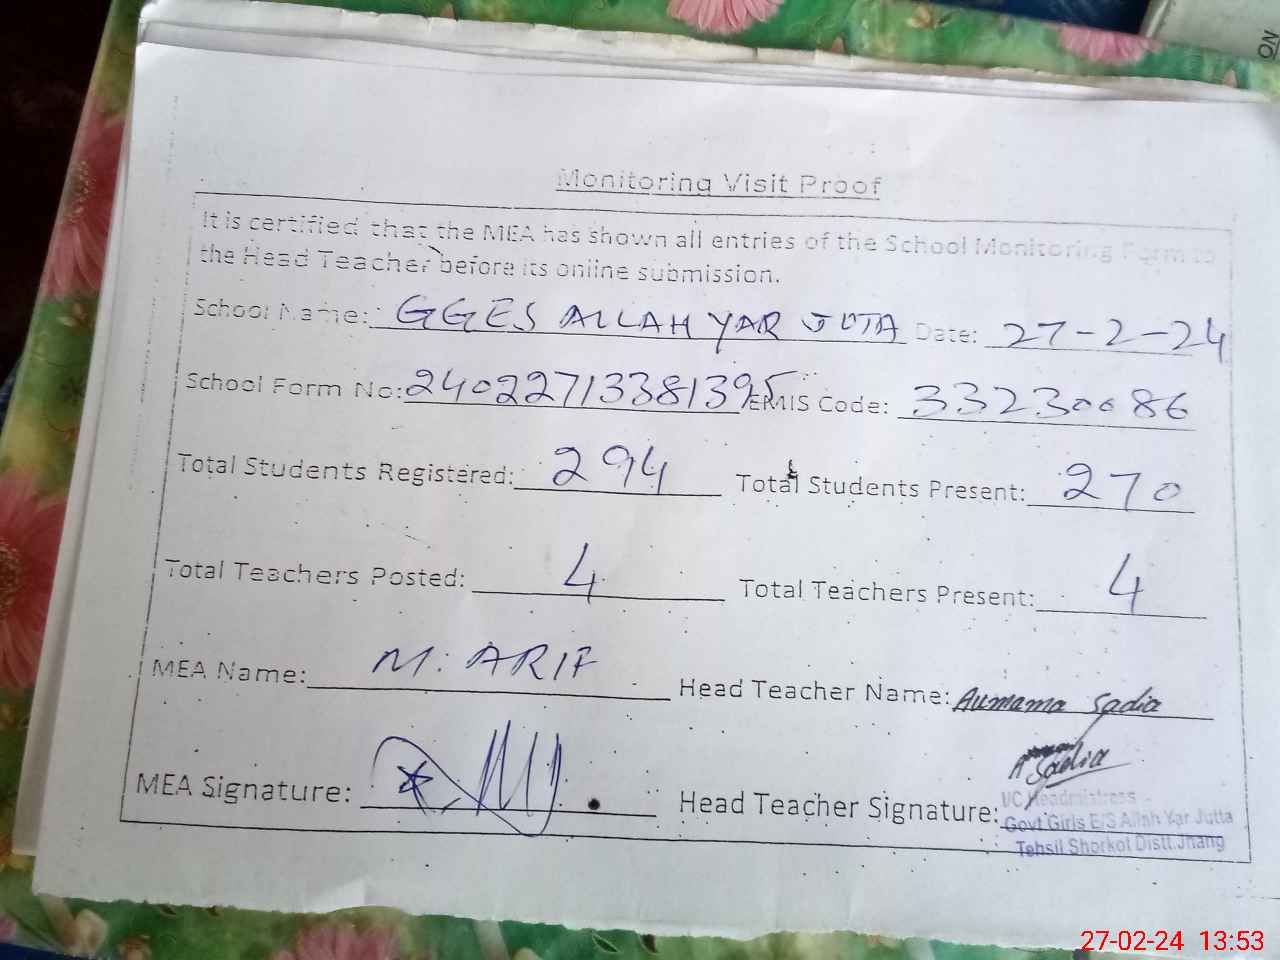 NO
Monitoring Visit Proof
It is certified that the MEA has shown all entries of the School Monitoring Form to
the Head Teacher before its online submission.
School Name: GGES ALLAH YAR JUTA Date: 27-2-24
School Form No: 24022713381395 EMIS Code: 33230086
Total Students Registered: 294 Total Students Present: 270
Total Teachers Posted: 4 Total Teachers Present: 4
MEA Name: M. ARIF Head Teacher Name: Aumama Sadia
MEA Signature: Head Teacher Signature: A Sadia
I/C Headmistress
Govt Girls E/S Allah Yar Jutta
Tehsil Shorkot Distt Jhang
27-02-24 13:53